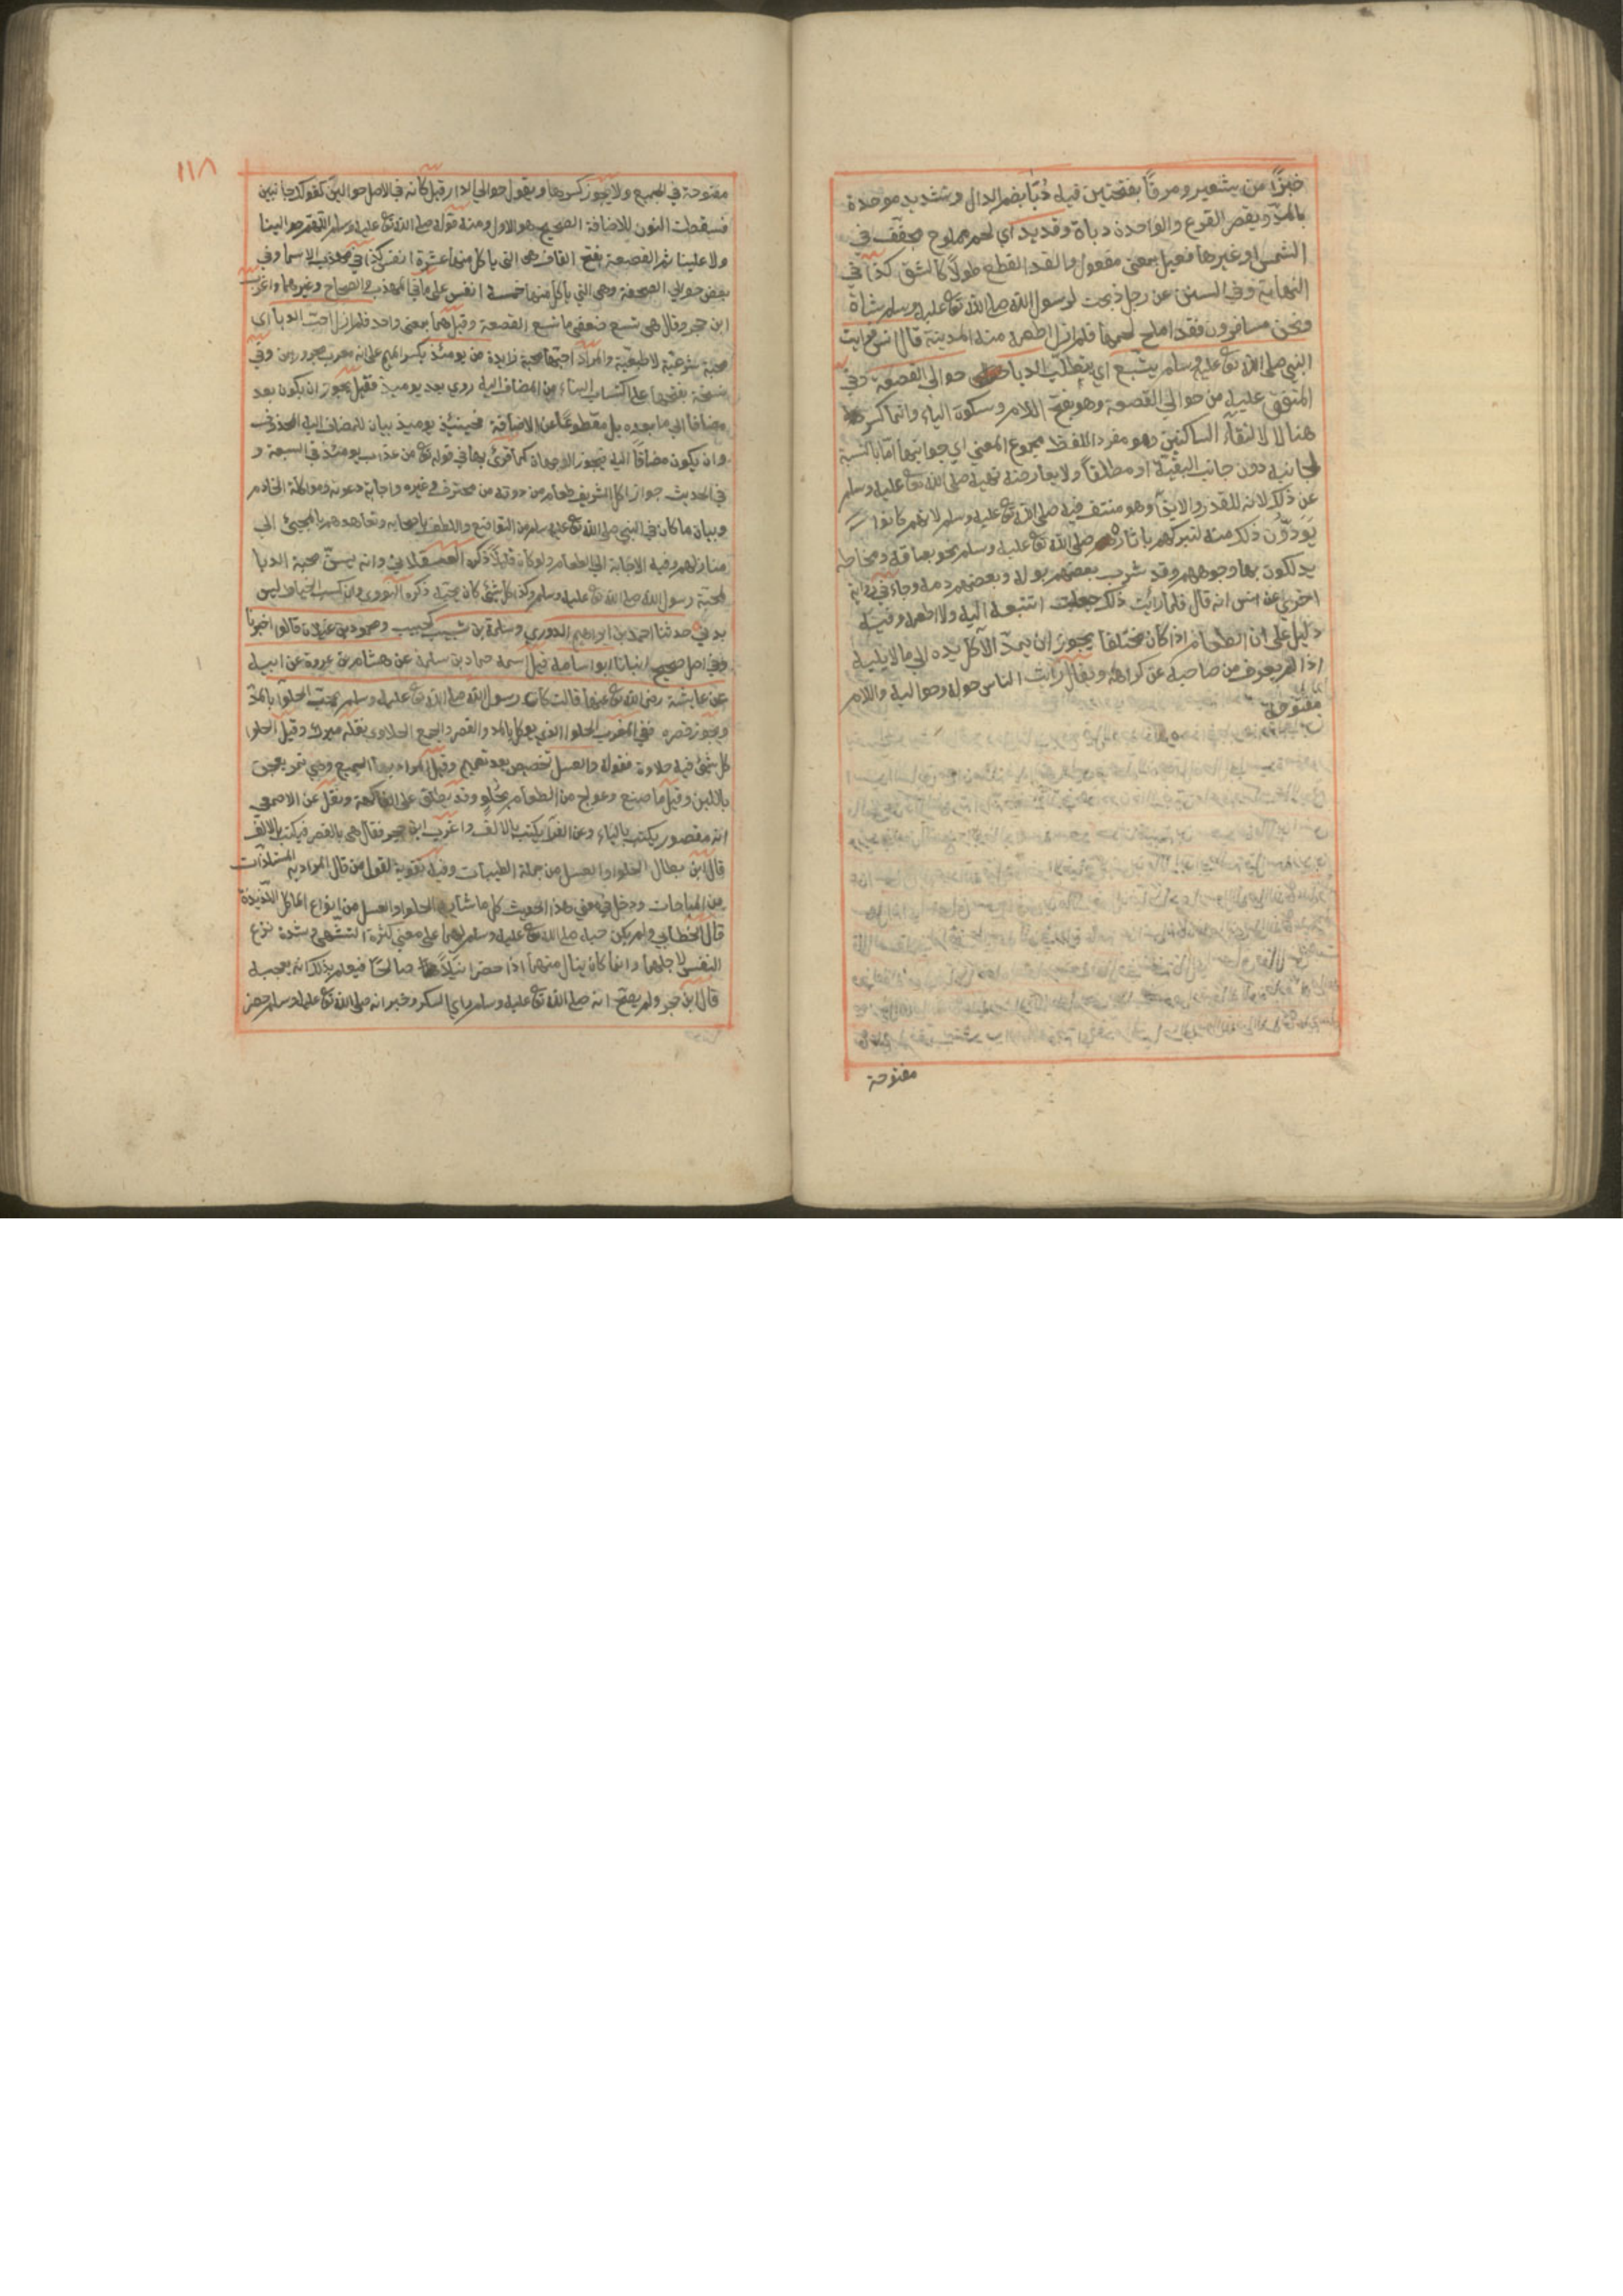 خبزًا من شعير ومرقًا بفتحتين فيه دُبّاء بضم الدال وتشديد موحدة
بالمدّ ويقصر القرع والواحدة دباة وقديد اي لحم مملوح مجفف في
الشمس او غيرها فعيل بمعنى مفعول والقد القطع طولًا كالشق كذا في
النهاية وفي السنن عن رجل ذبحت لرسول الله صلى الله تع عليه وسلم شاة
ونحن مسافرون فقد املح لحمها فلم ازل اطعمه منه المدينة قال انس فرايت
النبي صلى الله تع عليه وسلم يتتبع اي يتطلب الدبا حوالي القصعة وفي
المتفق عليه من حوالي القصعة وهو بفتح اللام وسكون الياء وانما كسر
هنا لالتقاء الساكنين وهو مفرد اللفظ مجموع المعنى اي جوانبها اما بالنسبة
لجانبه دون جانب البقية او مطلقًا ولا يعارضه نهيه صلى الله تع عليه وسلم
عن ذلك لانه للقذر والايذاء وهو منتف فيه صلى الله تع عليه وسلم لانهم كانوا
يودّون ذلك منه لتبركهم باثاره صلى الله تع عليه وسلم نحو بصاقه ومخاطه
يدلكون بها وجوههم وقد شرب بعضهم بوله وبعضهم دمه وجاء في رواية
اخرى عن انس انه قال فلما رايت ذلك جعلت اتتبعه اليه ولا اطعمه وفيه
دليل على ان الطعام اذا كان مختلفا يجوز ان يمدّ الآكل يده الى ما لا يليه
اذا لم يعرف من صاحبه عن كراهة ويقال رايت الناس حوله وحواليه واللام
مفتوحة
مفتوحة
١١٨
مفتوحة في الجميع ولا يجوز كسرها ويقول حوالي الدار قيل كانه في الاصل حوالين كقولك جانبين
فسقطت النون للاضافة الصحيح هو الاول ومنه قوله صلى الله تع عليه وسلم اللهم حوالينا
ولا علينا ثم القصعة بفتح القاف هي التي ياكل منها عشرة انفس كذا في مهذب الاسما وفي
بعض حوالي الصحفة وهي التي ياكل منها خمسة انفس على ما في المهذب والصحاح وغيرهما واغرب
ابن حجر وقال هي تسع ضعفي ما تسع القصعة وقيل هما بمعنى واحد فلم ازل احب الدبا اي
محبة شرعية لا طبعية والمراد احبها محبة زايدة من يومئذ بكسر الميم على انه معرب مجرور بمن وفي
نسخة بفتحها على اكتساب البناء من المضاف اليه روي بعد يوميذ فقيل يجوز ان يكون بعد
مضافا الى ما بعده بل مقطوعًا عن الاضافة فحينئذ يوميذ بيان للمضاف اليه المحذوف
وان يكون مضافًا اليه فيجوز الوجهان كما قرئ بها في قوله تع من عذاب يومئذ في السبعة و
في الحديث جواز اكل الشريف طعام من دونه من محترف وغيره واجابة دعوته ومواكلة الخادم
وبيان ما كان في النبي صلى الله تع عليه وسلم من التواضع واللطف باصحابه وتعاهدهم بالمجيئ الى
منازلهم وفيه الاجابة الى الطعام ولو كان قليلًا ذكره العسقلاني وانه يسنّ محبة الدبا
لمحبة رسول الله صلى الله تع عليه وسلم وكذا كل شئ كان يحبه ذكره النووي وان كسب الخياط ليس
بدني حدثنا احمد بن ابراهيم الدوري وسلمة بن شبيب كحبيب ومحمود بن غيلان قالوا اخبرنا
وفي اصل صحيح انبانا ابو اسامة قيل اسمه حماد بن سلمة عن هشام بن عروة عن ابيه
عن عايشة رضى الله تع عنها قالت كان رسول الله صلى الله تع عليه وسلم يحبّ الحلوآ بالمدّ
ويجوز قصره ففي المغرب الحلوا الذي يوكل بالمد والقصر والجمع الحلاوى نقله ميرك وقيل الحلوا
كل شئ فيه حلاوة فقوله والعسل تخصيص بعد تعميم وقيل المراد بها المجيع وهي تمر يعجن
باللبن وقيل ما صنع وعولج من الطعام بحُلوٍ وقد يطلق على الفاكهة ونقل عن الاصمعي
انه مقصور يكتب بالياء وعن الفرّا يكتب بالالف واغرب ابن حجر فقال هي بالقصر فيكتب بالالف
قال ابن بطال الحلوا والعسل من جملة الطيبات وفيه تقوية لقول من قال المراد به المستلذآت
من المباحات ودخل في معنى هذا الحديث كل ما شابه الحلوا والعسل من انواع الماكل اللذيذة
قال الخطابي ولم يكن حبه صلى الله تع عليه وسلم لهما على معنى كثرة التشهي وشدة نزع
النفس لاجلهما وانما كان ينال منهما اذا حضرا نيلًا صالحًا فيعلم بذلك انه يعجبه
قال ابن حجر ولم يصح انه صلى الله تع عليه وسلم راى السكر وخبر انه صلى الله تع عليه وسلم حضر